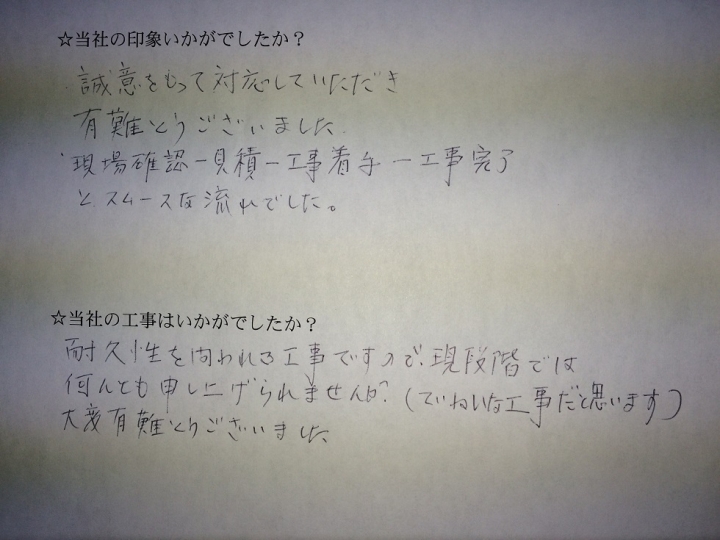 ☆当社の印象いかがでしたか？
・誠意をもって対応していただき
有難とうございました
・現場確認－見積－工事着手－工事完了
とスムースな流れでした。
☆当社の工事はいかがでしたか？
耐久性を問われる工事ですので、現段階では
何んとも申し上げられませんが？（ていねいな工事だと思います）
大変有難とうございました